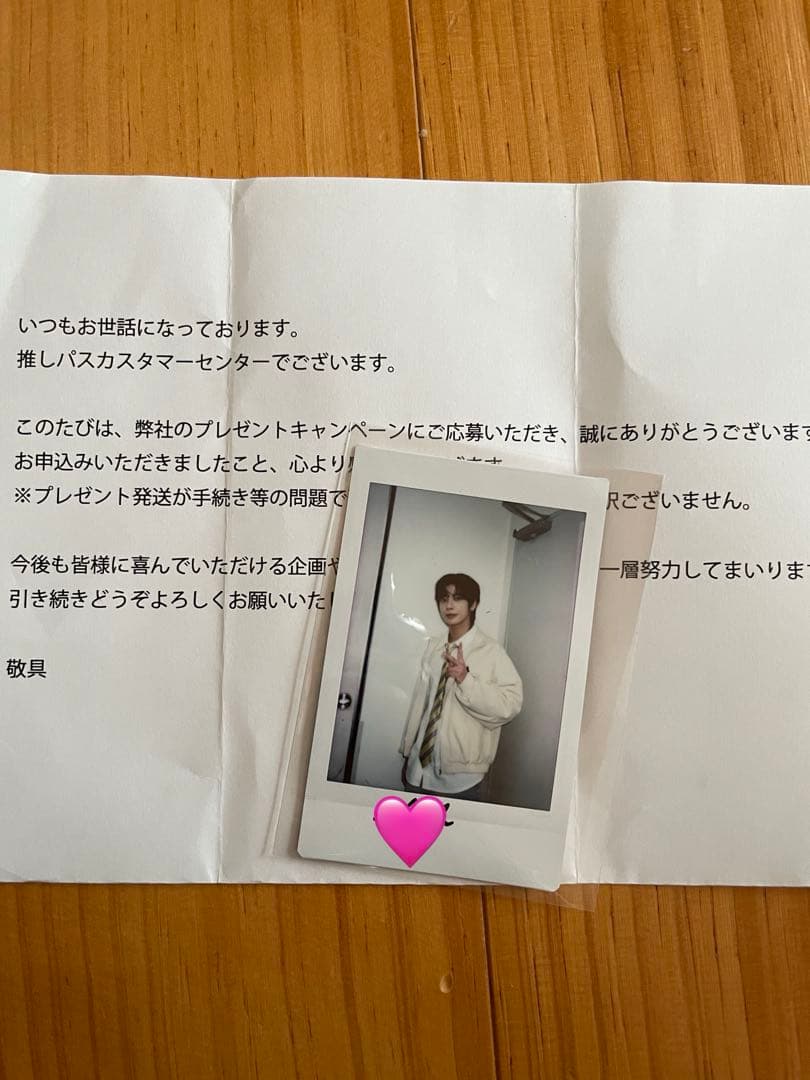 いつもお世話になっております。
推しパスカスタマーセンターでございます。
このたびは、弊社のプレゼントキャンペーンにご応募いただき、誠にありがとうございます
お申込みいただきましたこと、心より
※プレゼント発送が手続き等の問題で 訳ございません。
今後も皆様に喜んでいただける企画や 一層努力してまいります
引き続きどうぞよろしくお願いいたし
敬具